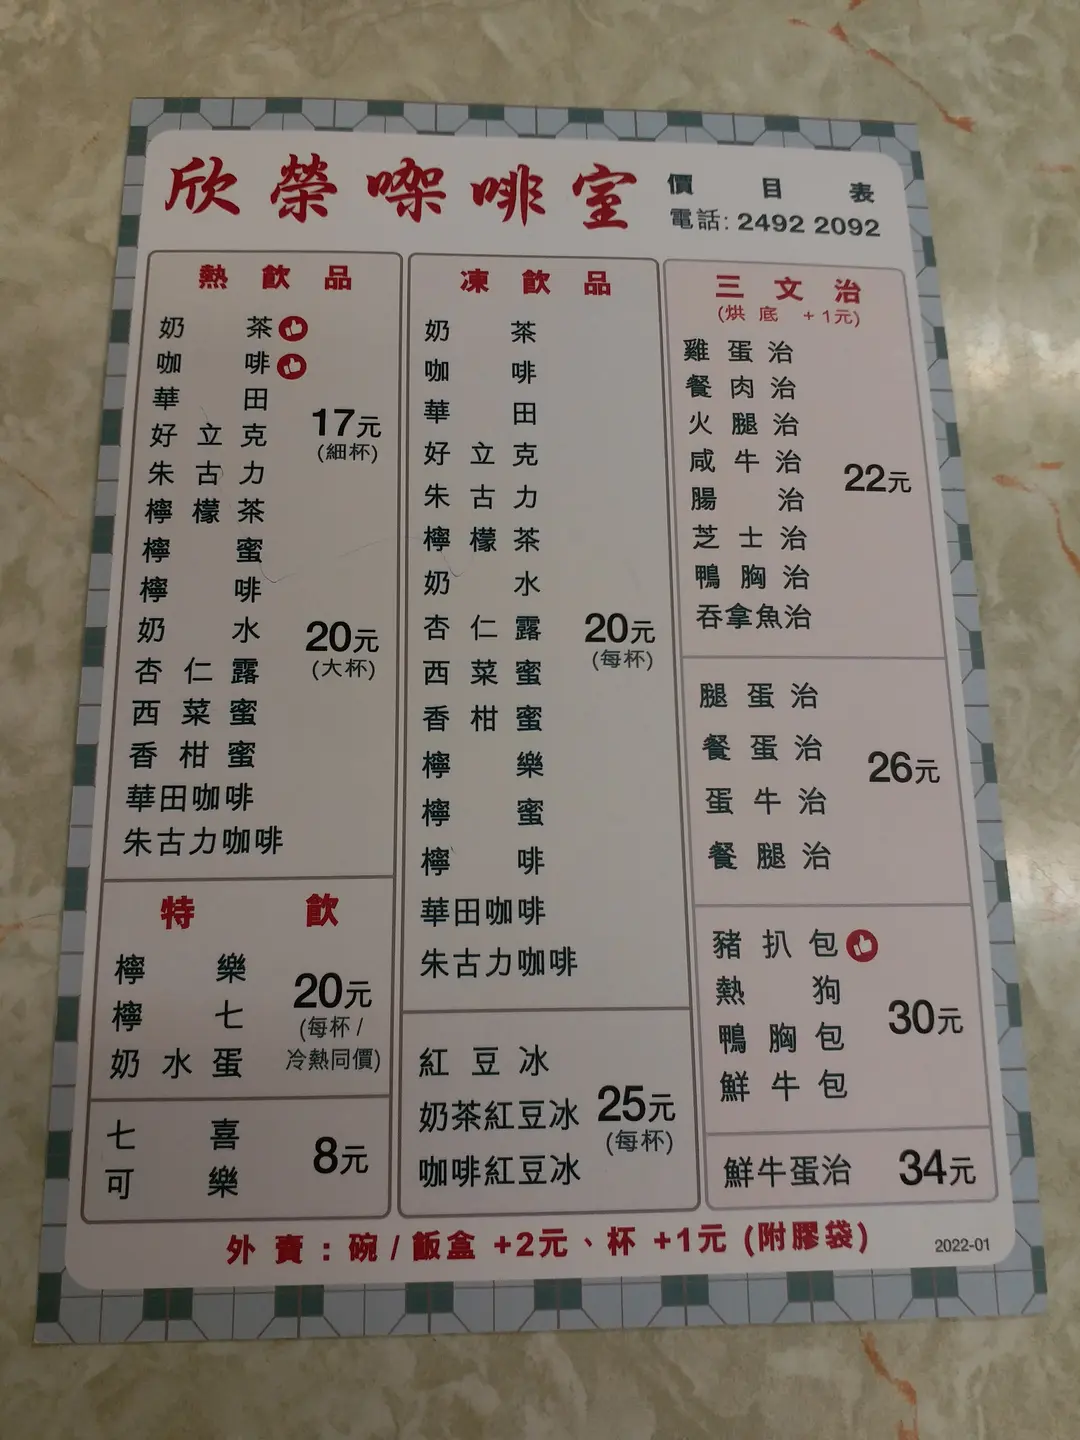 欣榮㗎啡室
價目表
電話: 2492 2092
熱飲品
奶茶
咖啡
華田
好立克
朱古力
檸檬茶
檸蜜
檸啡
奶水
杏仁露
西菜蜜
香柑蜜
華田咖啡
朱古力咖啡
17元
(細杯)
20元
(大杯)
特飲
檸樂
檸七
奶水蛋
20元
(每杯 /
冷熱同價)
七喜
可樂
8元
凍飲品
奶茶
咖啡
華田
好立克
朱古力
檸檬茶
奶水
杏仁露
西菜蜜
香柑蜜
檸樂
檸蜜
檸啡
華田咖啡
朱古力咖啡
20元
(每杯)
紅豆冰
奶茶紅豆冰
咖啡紅豆冰
25元
(每杯)
三文治
(烘底 +1元)
雞蛋治
餐肉治
火腿治
咸牛治
腸治
芝士治
鴨胸治
吞拿魚治
22元
腿蛋治
餐蛋治
蛋牛治
餐腿治
26元
豬扒包
熱狗
鴨胸包
鮮牛包
30元
鮮牛蛋治 34元
外賣：碗 / 飯盒 +2元、杯 +1元 (附膠袋)
2022-01